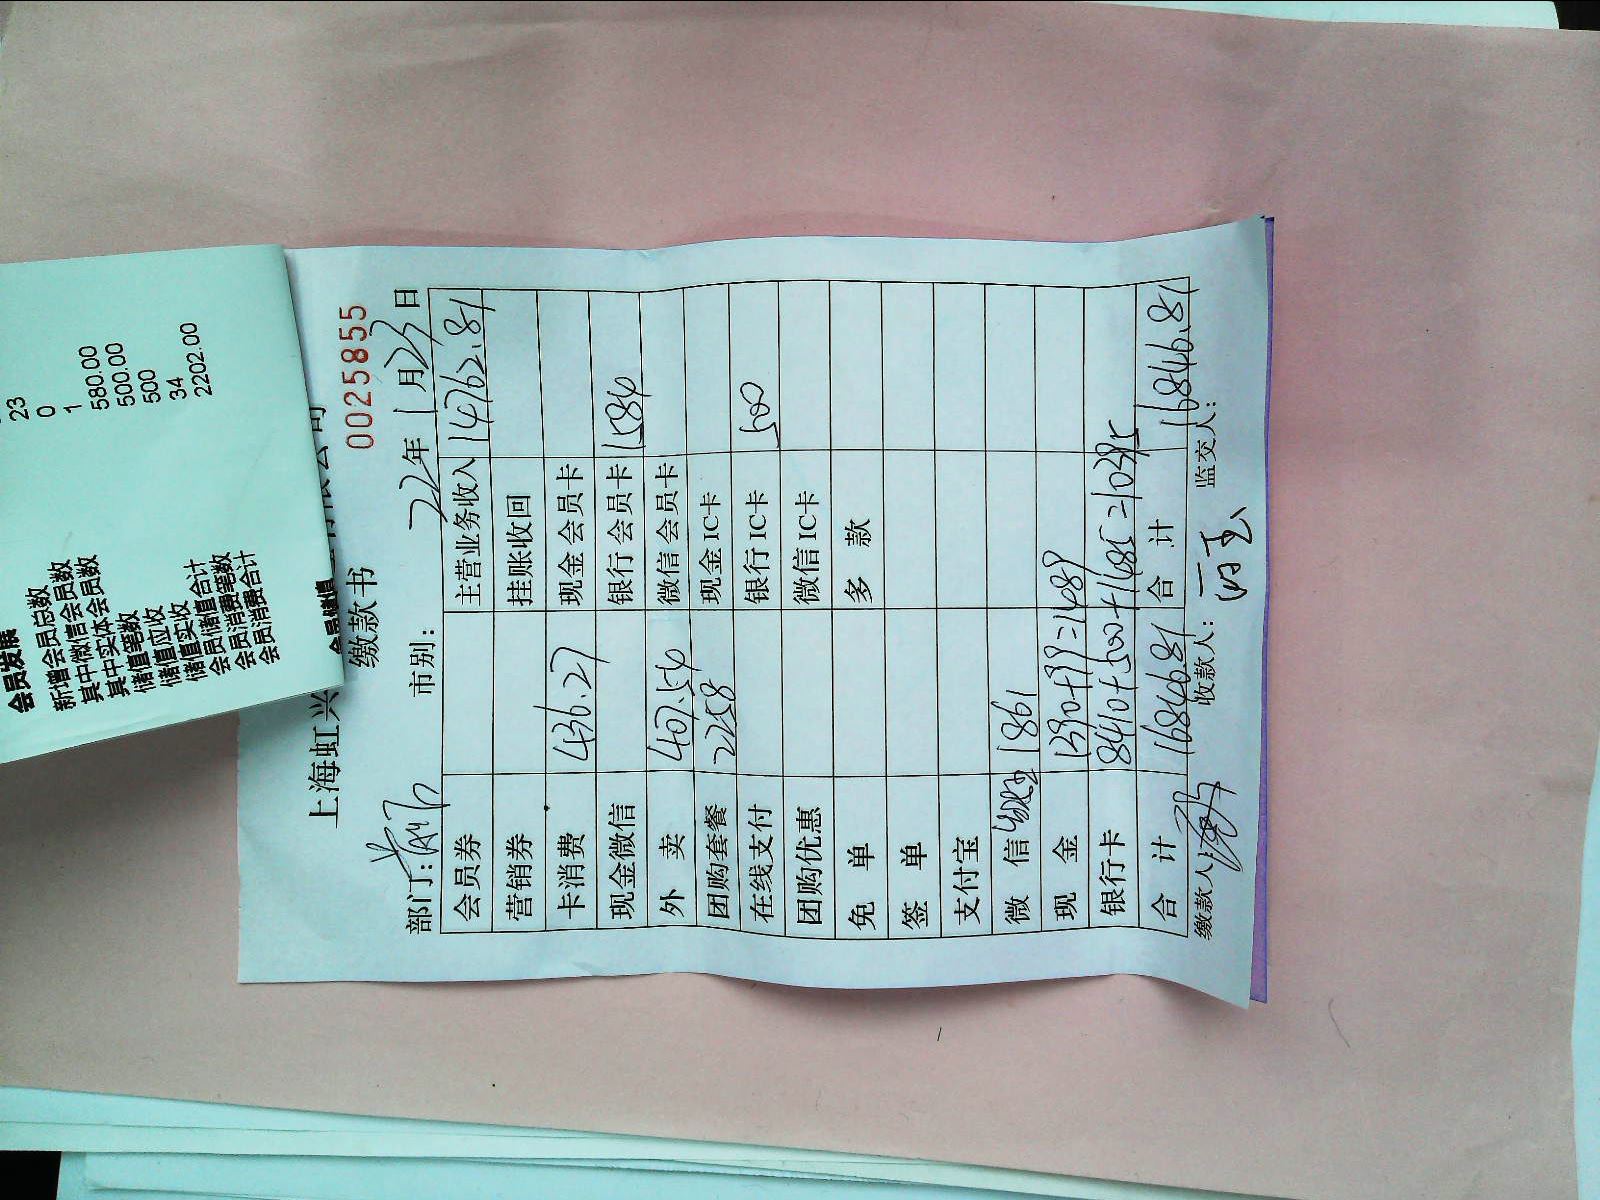 会员发展
新增会员总数
其中微信会员数 23
其中实体会员数 0
储值笔数 1
储值应收 580.00
储值实收 500.00
会员储值合计 500
会员消费笔数 34
会员消费合计 2202.00
会员储值
上海虹兴 公司
缴款书 0025855
部门: 市别: 22年1月23日
会员券 主营业务收入 14762.81
营销券 挂账收回
卡消费 436.27 现金会员卡
现金微信 银行会员卡 1584
外卖 407.54 微信会员卡
团购套餐 2258 现金IC卡
在线支付 银行IC卡 500
团购优惠 微信IC卡
免单 多款
签单
支付宝
微信 1861
现金 1390+99=1489
银行卡 8410+500+1485=10395
合计 16846.81 合计 16846.81
缴款人: 收款人: 监交人: